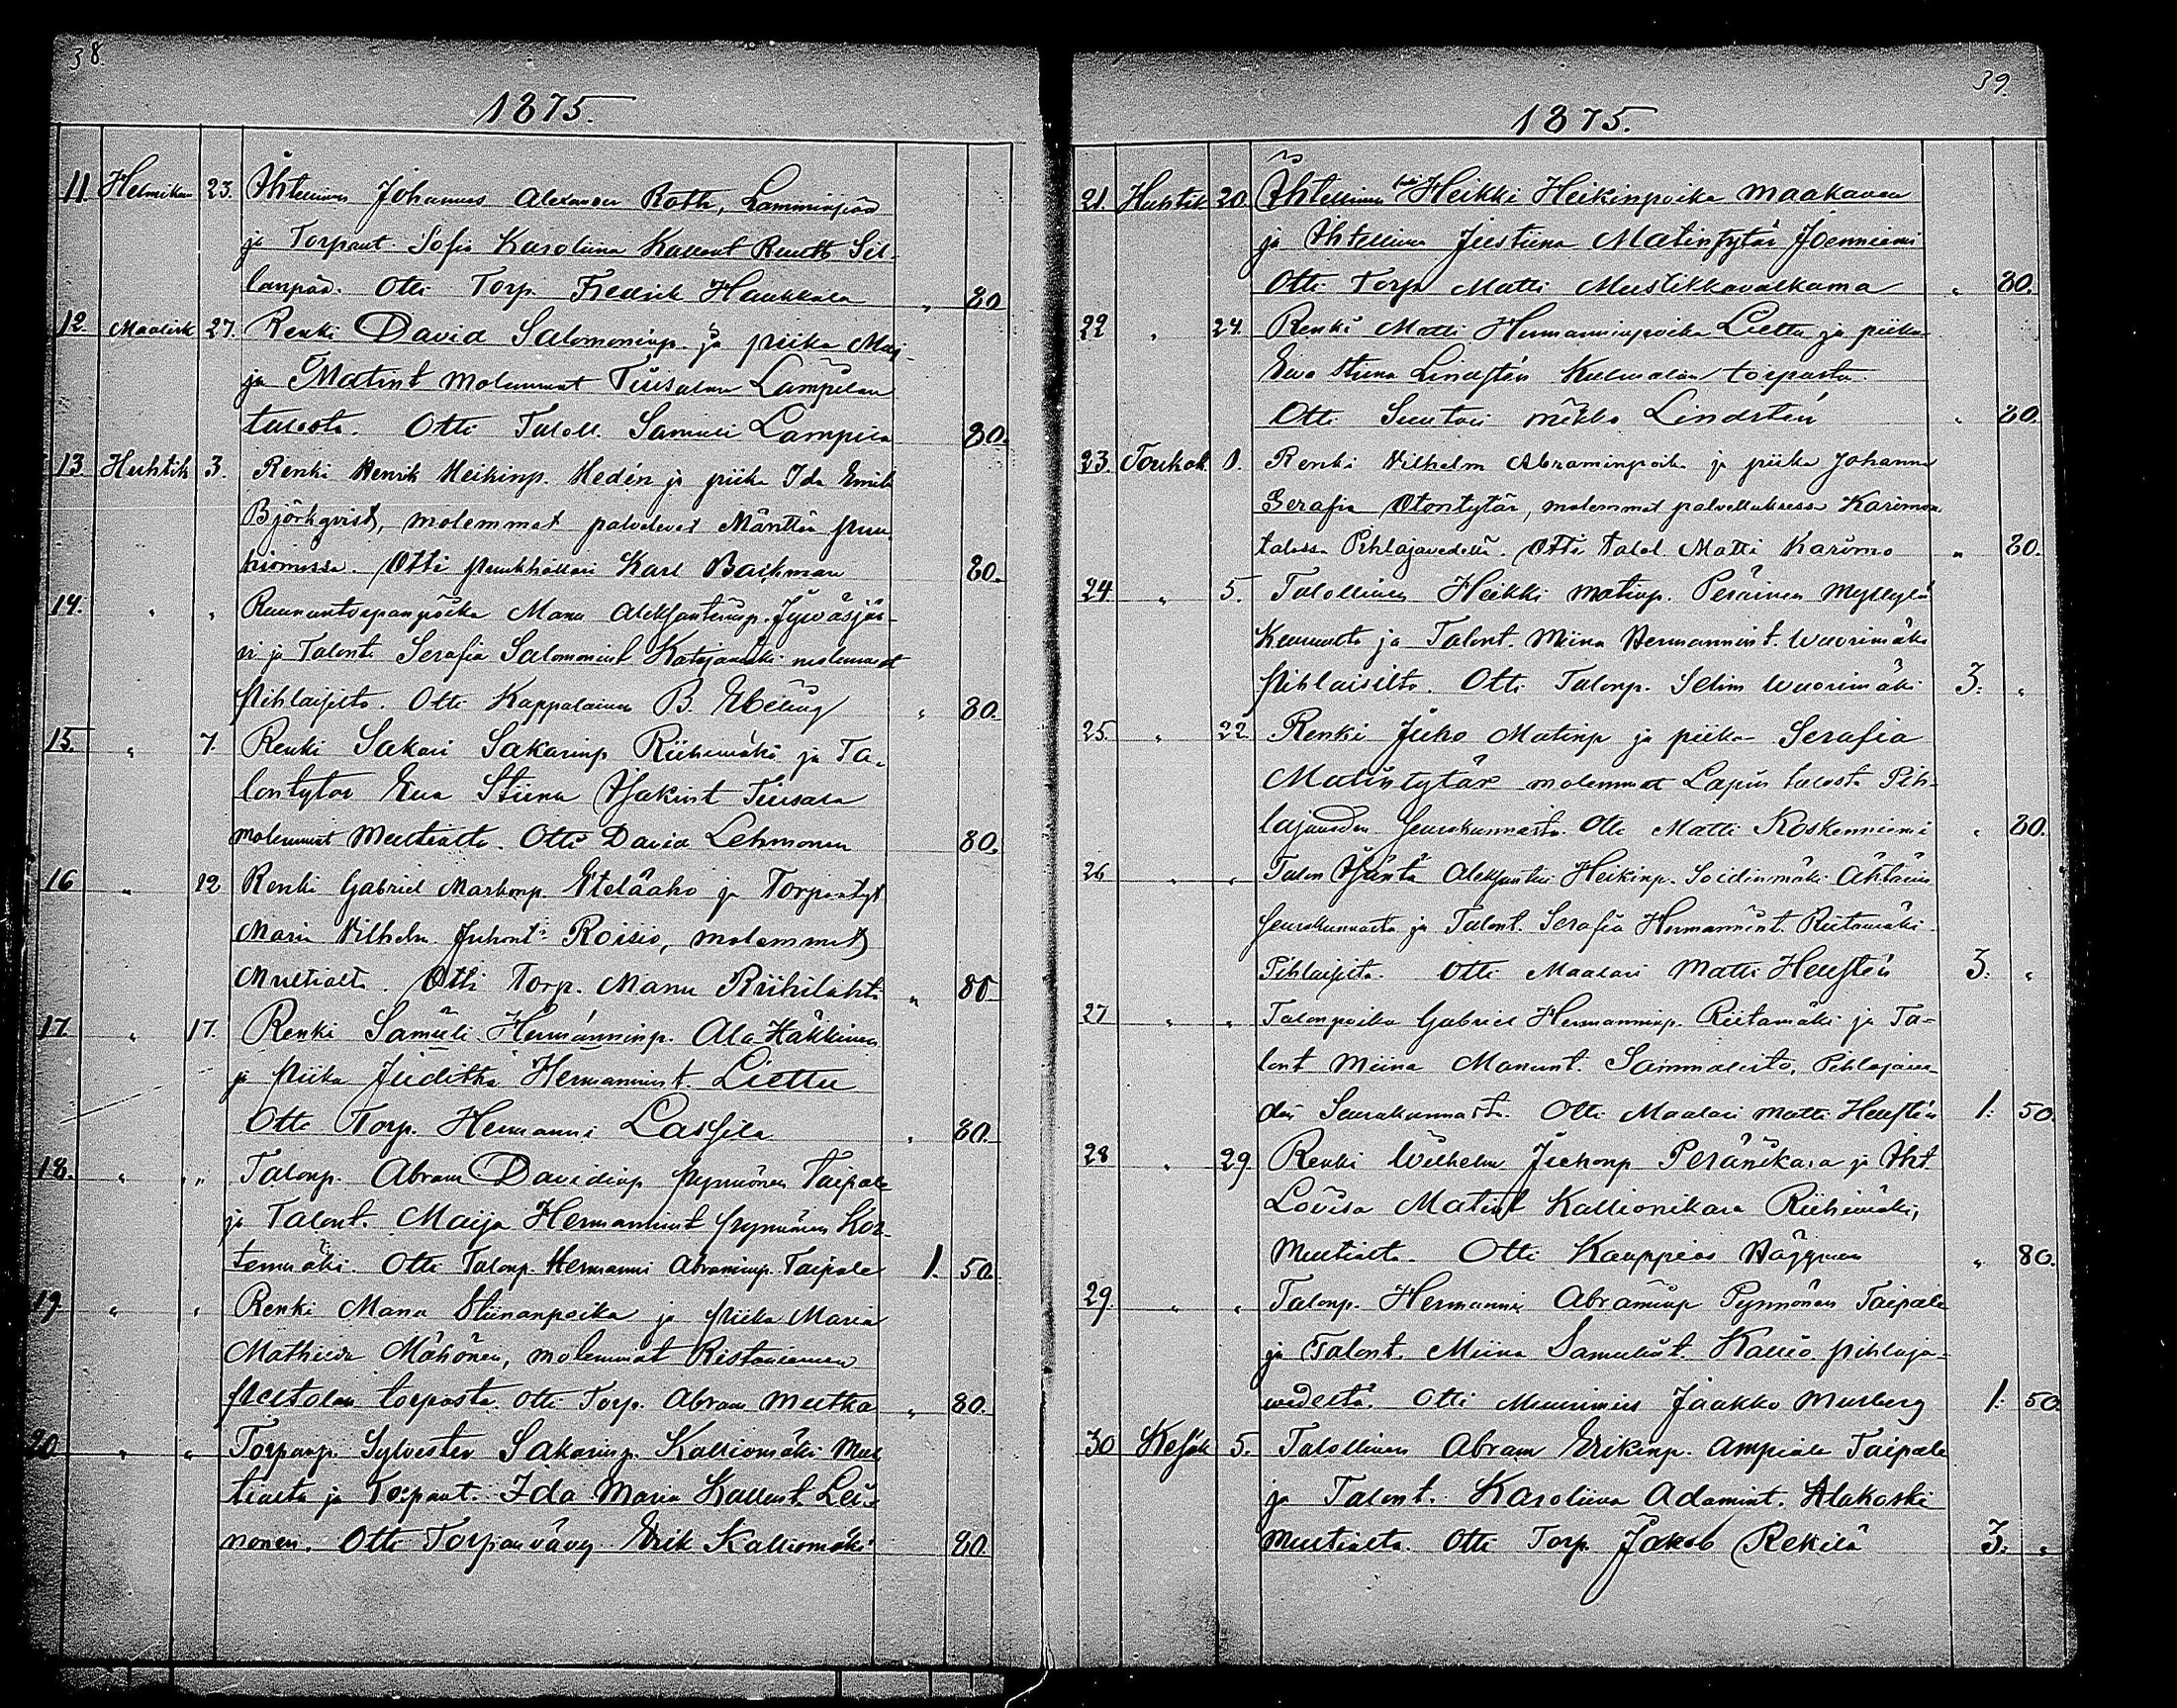 38.
1875.
11. Helmikuu 23. Ihtellinen Johannes Alexander Roth, Lamminpää
ja Torpant. Sofia Karoliina Kallent Ruuth Sil-
lanpää. Otti Torp. Fredrik Haukkala " 80
12. Maalisk 27. Renki David Salomoninp. ja piika Mai-
ja Matint molemmat Tiusalan Lampilan
talosta. Otti Taloll. Samuli Lampila 80.
13. Huhtik 3. Renki Henrik Heikinp. Hedén ja piika Ida Emil.
Björkqvist, molemmat palvelevat Mänttän puu
hiomossa. Otti puukhollari Karl Backman 80.
14. " " Ruununtorpanpoika Manu Aleksanterinp. Jywäsjär-
vi ja Talont. Serafia Salomonint Katajamäki molemmat
Pihlaisilta. Otti Kappalainen B. " 80.
15. " 7. Renki Sakari Sakarinp Riihimäki ja Ta-
lontytär Eva Stiina Isakint Tiusala
molemmat Multialta. Otti David Lehmonen 80.
16 " 12 Renki Gabriel Markonp. Eteläaho ja Torpantyt
Maria Vilhelm. Juhont. Roisio, molemmat
Multialta. Otti Torp. Manu Riihilahti " 80.
17. " 17. Renki Samuli Hermanninp. Ala-Häkkinen
ja Piika Juditha Hermannint. Liettu
Otti Torp. Hermanni Lassila " 80.
18. " " Talonp. Abram Davidinp Pynnönen Taipale
ja Talont. Maija Hermannint Pynnönen Kor-
temäki. Otti Talonp. Hermanni Abraminp. Taipale 1. 50.
19. " " Renki Manu Stiinanpoika ja piika Maria
Mathilda Mähönen, molemmat Ristaniemen
Peltolan torposta. Otti Torp. Abram Mutka " 80.
20 " " Torpanp. Sylvester Sakarinp. Kalliomäki Mul
tialta ja Torpant. Ida Maria Kallent. Lei-
nonen. Otti Torpanvävy Erik Kalliomäki 80
39.
1875.
21. Huhtik 20. Ihtellinen Heikki Heikinpoika Maakanen
ja Ihtellinen Justiina Matintytär Joenniemi
Otti Torp Matti Mustikkavalkama " 80.
22 " 24. Renki Matti Hermanninpoika Liettu ja piika
Ewa Stiina Lindstén Kulmalan torpasta
Otti Suutari Mikko Lindstén " 80.
23. Toukok. 1. Renki Vilhelm Abraminpoika ja piika Johanna
Serafia Otontytär, molemmat palvelluksessa Karimon
talossa Pihlajavedellä. Otti talol Matti Karimo " 80.
24. " 5. Talollinen Heikki Matinp. Peräinen Myllylä
Keuruulta ja Talont. Miina Hermannint. Wuorimäki
Pihlaisilta. Otti Talonp. Selim Wuorimäki 3. "
25. " 22. Renki Juho Matinp ja piika Serafia
Matintytär molemmat Lapin talosta Pih-
lajaveden seurakunnasta. Otti Matti Koskenniemi " 80.
26 " " Talon Isäntä Aleksanteri Heikinp. Soidinmäki Ähtärin
seurakunnasta ja Talont. Serafia Hermannint. Riitamäki
Pihlaisilta. Otti Maalari Matti Hellstén 3. "
27 " " Talonpoika Gabriel Hermanninp. Riitamäki ja Ta-
lont Miina Manunt. Sammalisto, Pihlajave-
den Seurakunnasta. Otti Maalari Matti Hellstén 1: 50.
28 " 29. Renki Wilhelm Juhonp Peränikara ja Iht
Lovisa Matint Kallionikara Riihimäki,
Multialta. Otti Kauppias Häggman " 80.
29. " " Talonp. Hermanni Abraminp Pynnönen Taipale
ja Talont. Miina Samulint. Kallio Pihlaja-
wedeltä. Otti Muurimies Jaakko Murberg 1: 50
30 Kesäk 5. Talollinen Abram Erikinp. Ampiala Taipale
ja Talont. Karoliina Adamint. Alakoski
Multialta. Otti Torp. Jakob Rekilä 3. "